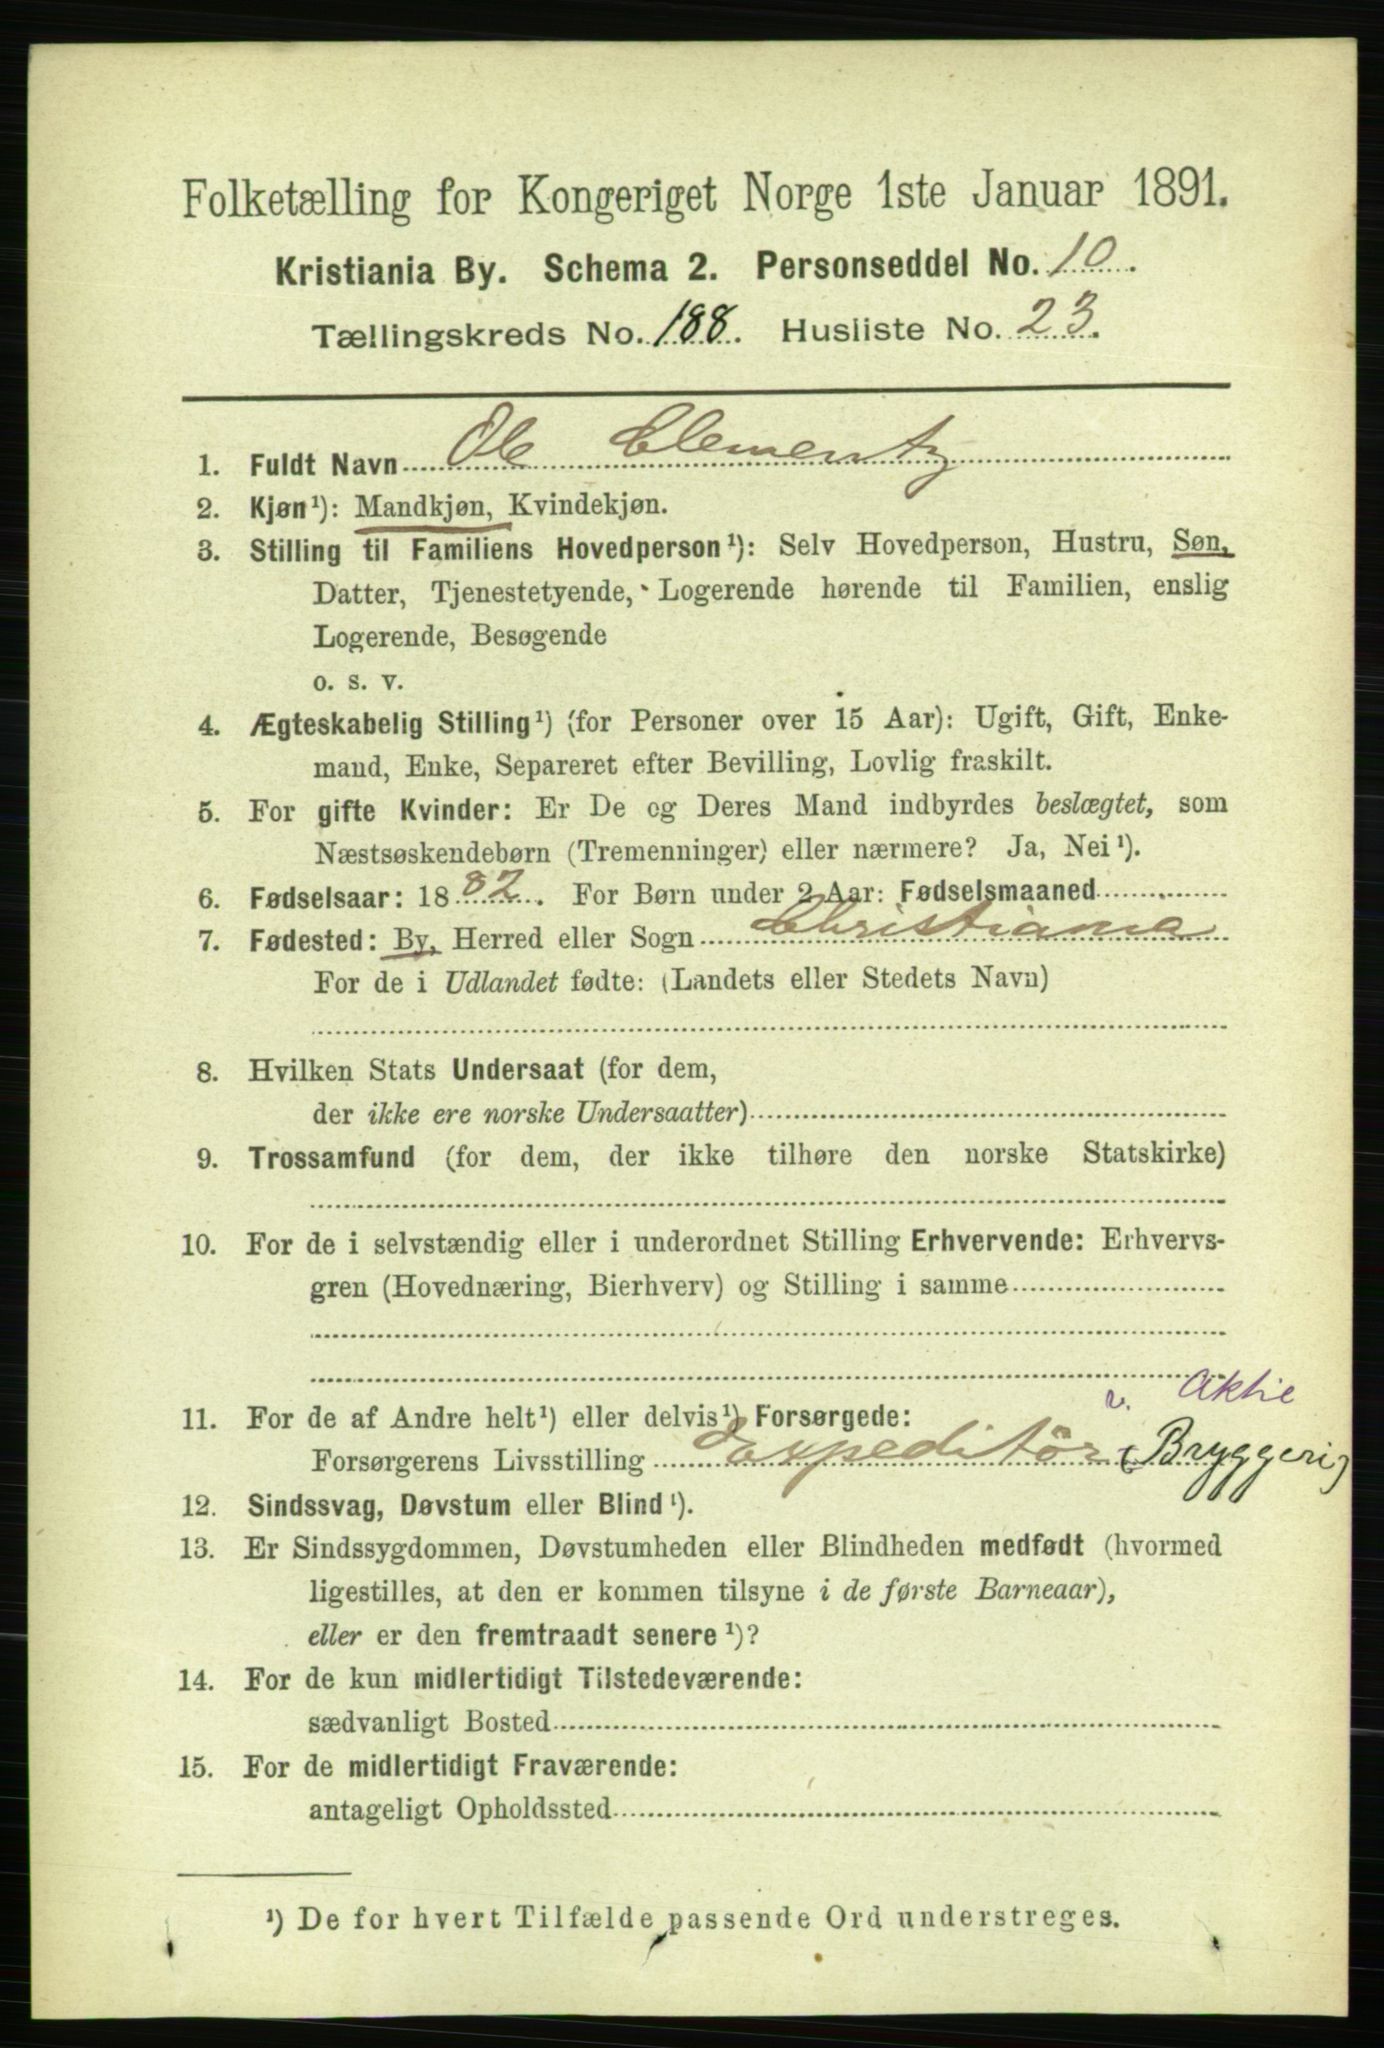 Folketælling for Kongeriget Norge 1ste Januar 1891.
Kristiania By. Schema 2. Personseddel No. 10.
Tællingskreds No. 188. Husliste No. 23.
1. Fuldt Navn Ole Clementz
2. Kjøn¹): Mandkjøn, Kvindekjøn.
3. Stilling til Familiens Hovedperson¹): Selv Hovedperson, Hustru, Søn,
Datter, Tjenestetyende, Logerende hørende til Familien, enslig
Logerende, Besøgende
o. s. v.
4. Ægteskabelig Stilling¹) (for Personer over 15 Aar): Ugift, Gift, Enke-
mand, Enke, Separeret efter Bevilling, Lovlig fraskilt.
5. For gifte Kvinder: Er De og Deres Mand indbyrdes beslægtet, som
Næstsøskendebørn (Tremenninger) eller nærmere? Ja, Nei¹).
6. Fødselsaar: 1882. For Børn under 2 Aar: Fødselsmaaned
7. Fødested: By, Herred eller Sogn Christiania
For de i Udlandet fødte: (Landets eller Stedets Navn)
8. Hvilken Stats Undersaat (for dem,
der ikke ere norske Undersaatter)
9. Trossamfund (for dem, der ikke tilhøre den norske Statskirke)
10. For de i selvstændig eller i underordnet Stilling Erhvervende: Erhvervs-
gren (Hovednæring, Bierhverv) og Stilling i samme
v. Aktie
11. For de af Andre helt¹) eller delvis¹) Forsørgede:
Forsørgerens Livsstilling Expeditör (Bryggeri)
12. Sindssvag, Døvstum eller Blind¹).
13. Er Sindssygdommen, Døvstumheden eller Blindheden medfødt (hvormed
ligestilles, at den er kommen tilsyne i de første Barneaar),
eller er den fremtraadt senere¹)?
14. For de kun midlertidigt Tilstedeværende:
sædvanligt Bosted
15. For de midlertidigt Fraværende:
antageligt Opholdssted
¹) De for hvert Tilfælde passende Ord understreges.